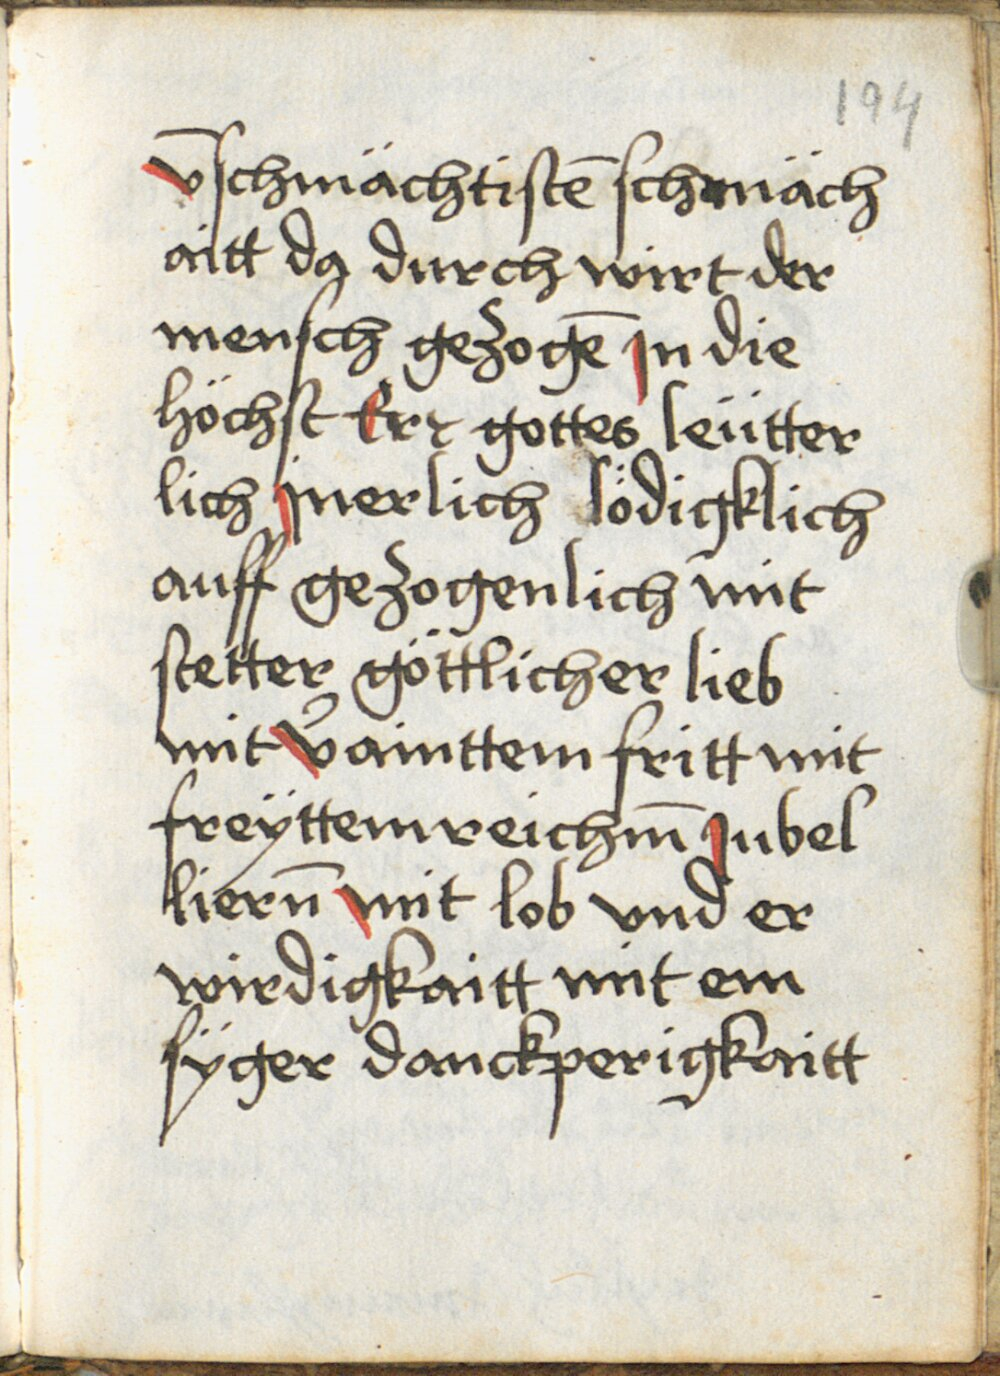 194
v̄schmächtistē schmäch
aitt da durch wirt der
mensch gezogē jn die
höchst Err gottes leütter
lich jnerlich lödigklich
auff gezogenlich mit
stetter göttlicher lieb
mit v̾ainttem fritt mit
freÿttemreichm̄ jubel
liern̄ mit lob vnd er
wirdigkaitt mit em
sÿger danckperigkaitt